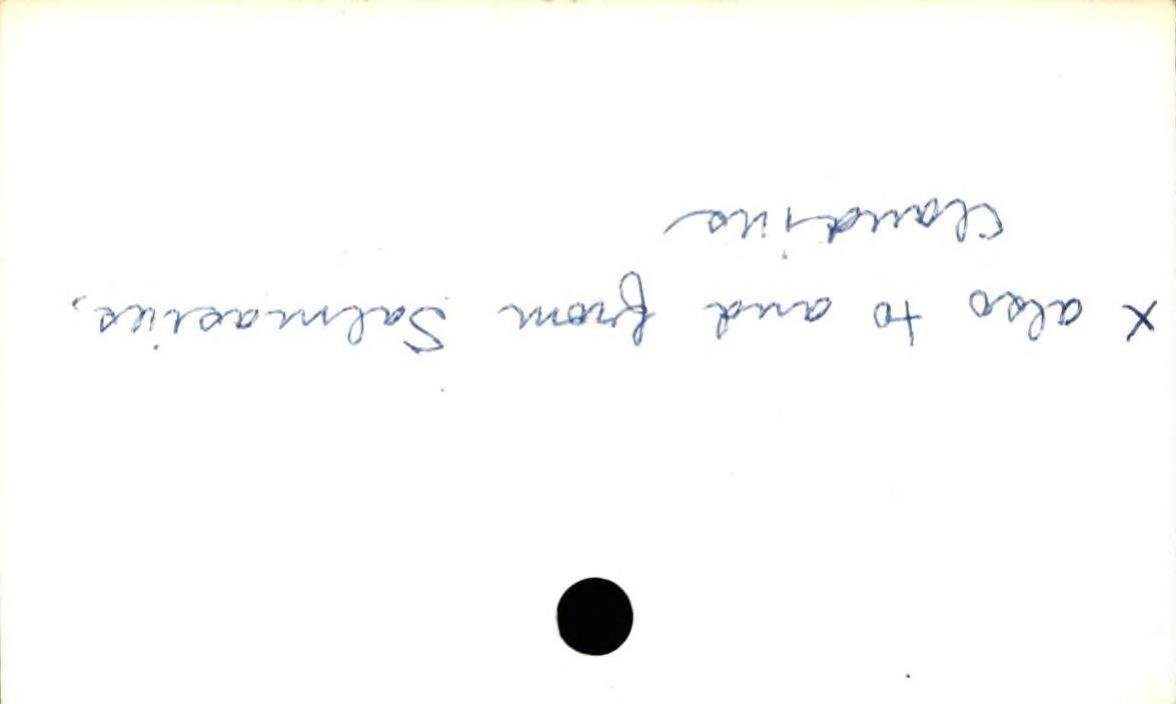 x also to and from Salmasius,
Claudius